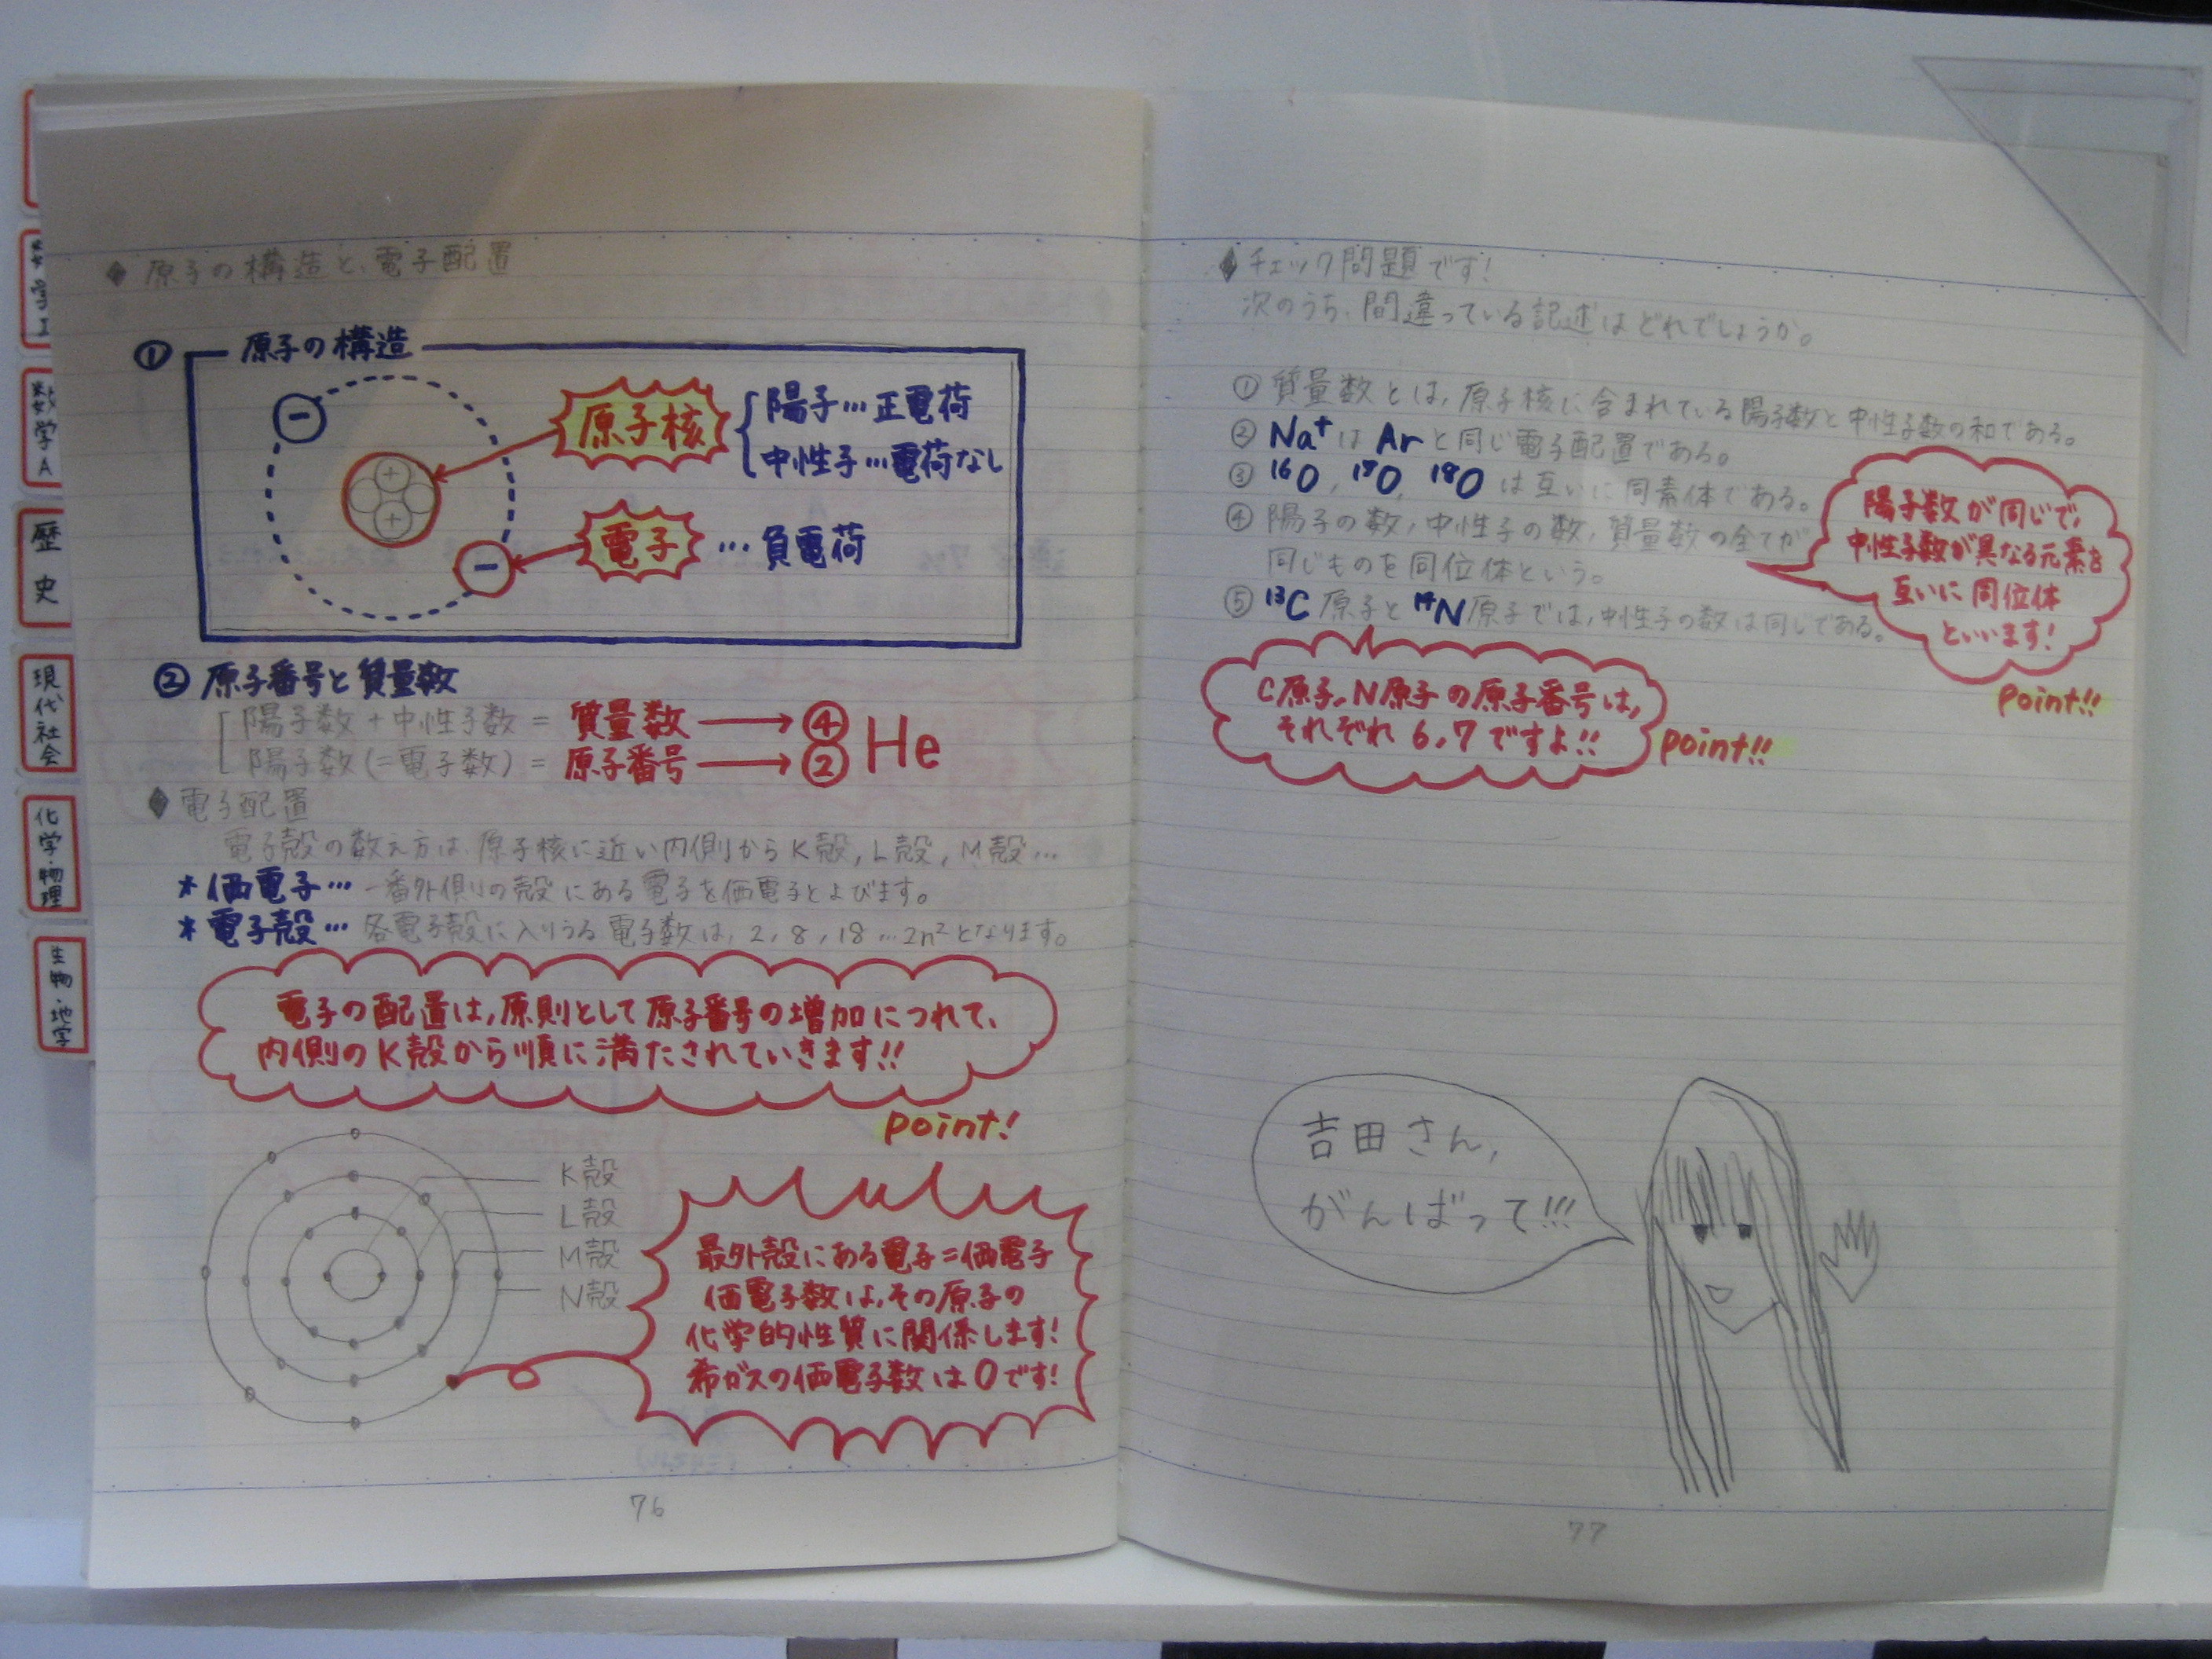 数学I
数学A
歴史
現代社会
化学・物理
生物・地学
◆ 原子の構造と、電子配置
① 原子の構造
原子核
陽子…正電荷
中性子…電荷なし
電子 … 負電荷
② 原子番号と質量数
陽子数+中性子数 = 質量数 → ④ He
陽子数(=電子数) = 原子番号 → ②
◆ 電子配置
電子殻の数え方は、原子核に近い内側からK殻, L殻, M殻…
* 価電子… 一番外側の殻にある電子を価電子とよびます。
* 電子殻… 各電子殻に入りうる電子数は, 2, 8, 18 … 2n²となります。
電子の配置は,原則として原子番号の増加につれて、
内側のK殻から順に満たされていきます!!
point!
K殻
L殻
M殻
N殻
最外殻にある電子=価電子
価電子数は,その原子の
化学的性質に関係します!
希ガスの価電子数は0です!
76
◆ チェック問題です!
次のうち、間違っている記述はどれでしょうか。
① 質量数とは, 原子核に含まれている陽子数と中性子数の和である。
② Na⁺はArと同じ電子配置である。
③ ¹⁶O, ¹⁷O, ¹⁸O は互いに同素体である。
④ 陽子の数, 中性子の数, 質量数の全てが
同じものを同位体という。
⑤ ¹³C原子と¹⁴N原子では,中性子の数は同じである。
陽子数が同じで,
中性子数が異なる元素を
互いに同位体
といいます!
point!!
C原子,N原子の原子番号は,
それぞれ6,7ですよ!!
point!!
吉田さん,
がんばって!!!
77